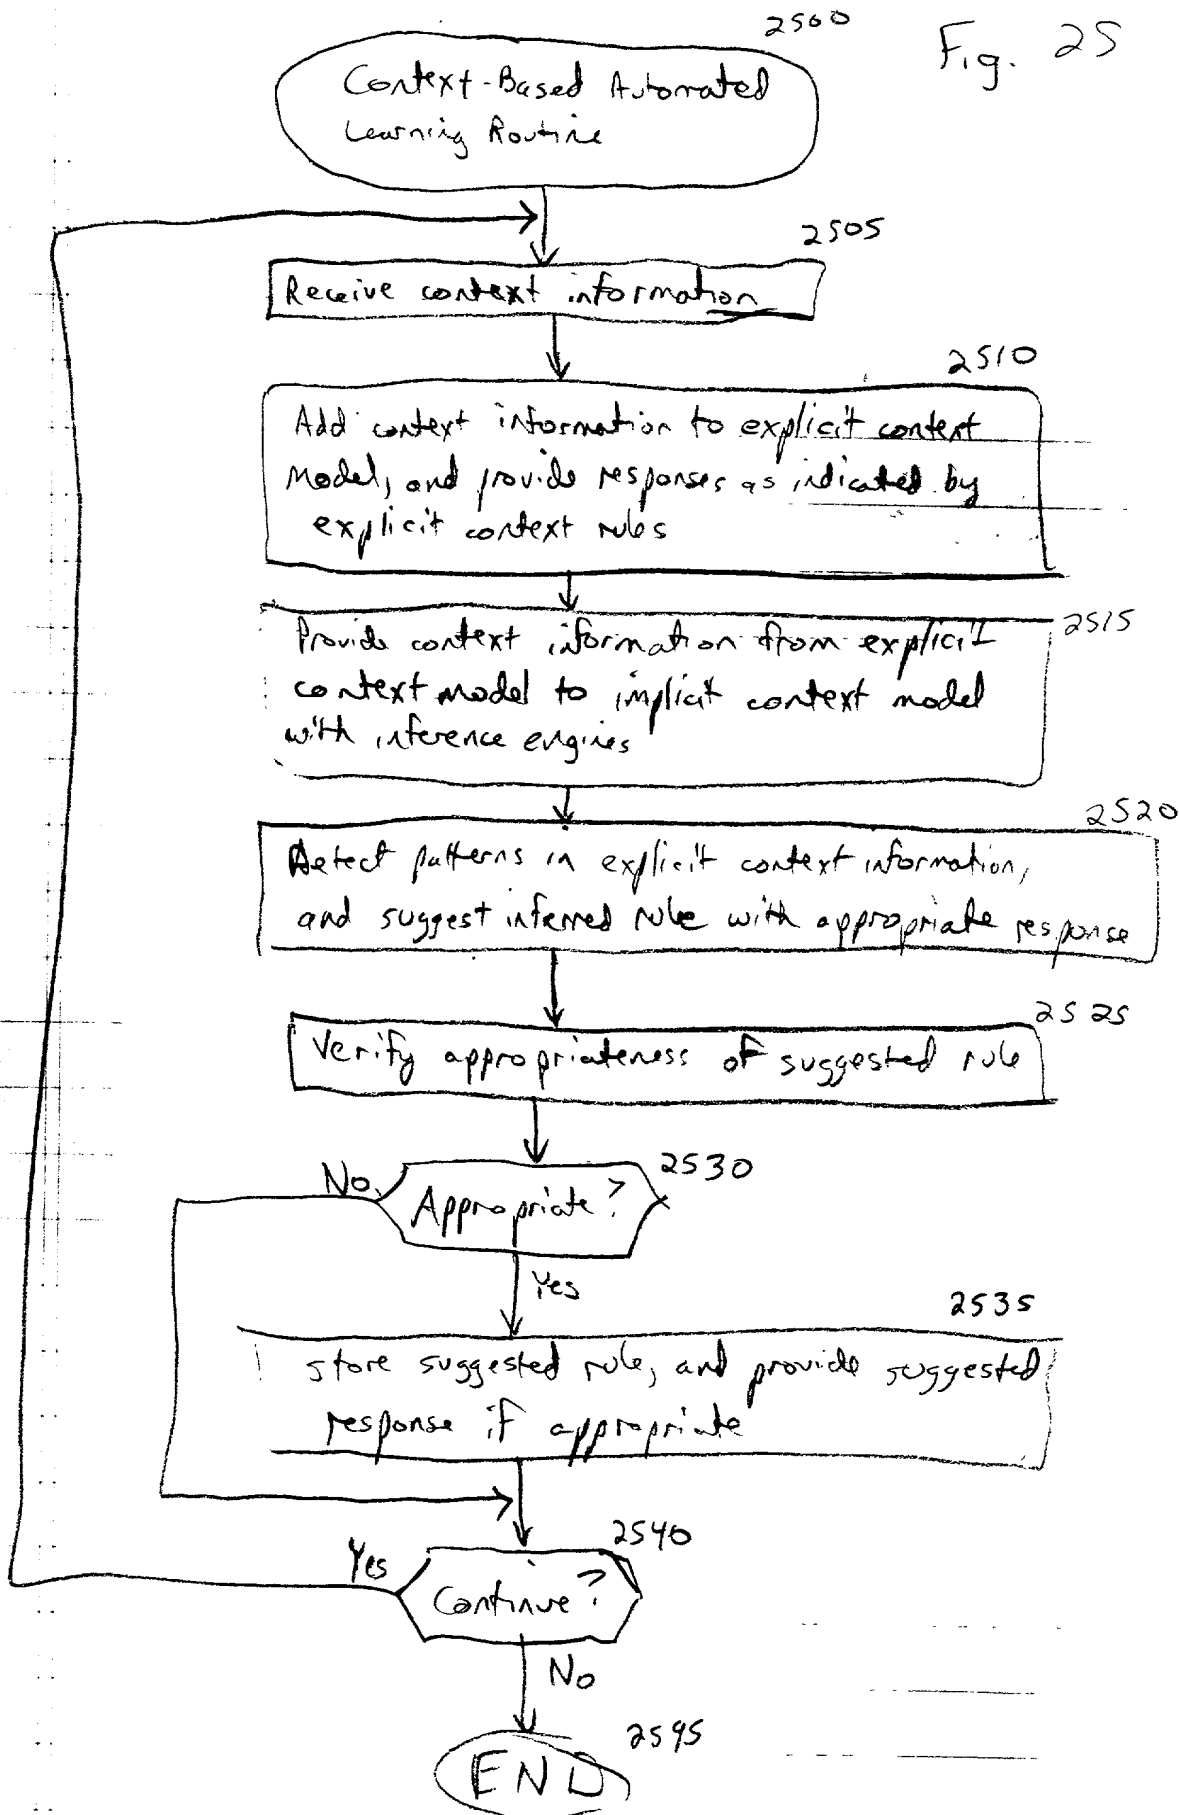 2500
Fig. 25
Context-Based Automated
Learning Routine
2505
Receive context information
2510
Add context information to explicit context
Model, and provide responses as indicated by
explicit context rules
2515
Provide context information from explicit
context model to implicit context model
with inference engines
2520
Detect patterns in explicit context information,
and suggest inferred rule with appropriate response
2525
Verify appropriateness of suggested rule
No
2530
Appropriate?
Yes
2535
store suggested rule, and provide suggested
response if appropriate
2540
Yes
Continue?
No
2595
END